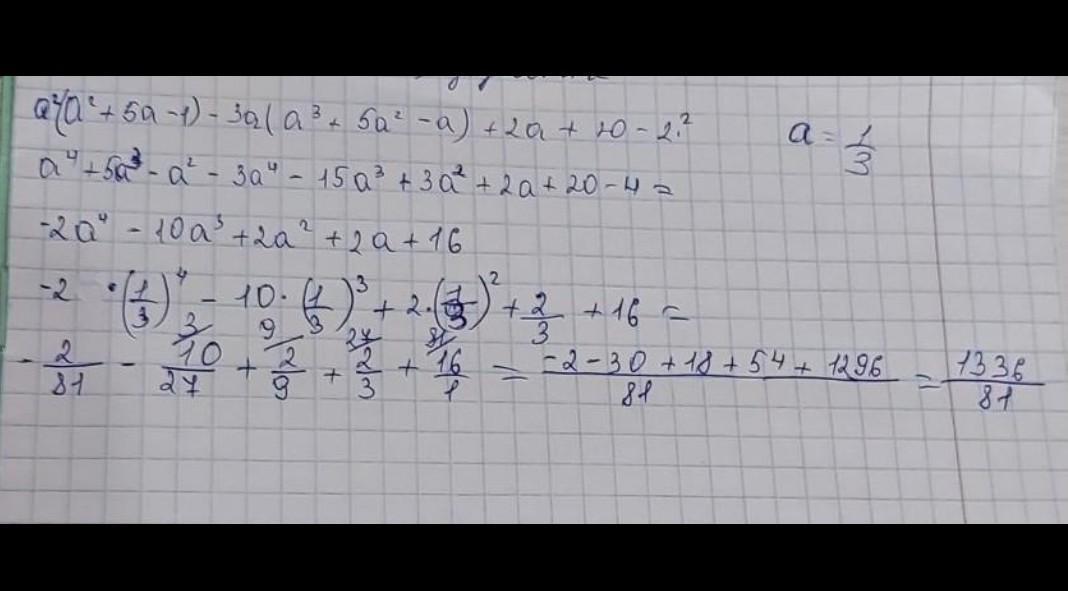 a²(a² + 5a - 1) - 3a(a³ + 5a² - a) + 2a + 20 - 2² a = 1/3
a⁴ + 5a³ - a² - 3a⁴ - 15a³ + 3a² + 2a + 20 - 4 =
-2a⁴ - 10a³ + 2a² + 2a + 16
-2 · (1/3)⁴ - 10 · (1/3)³ + 2 · (1/3)² + 2/3 + 16 =
3/ 9/ 27/ 81/
- 2/81 - 10/27 + 2/9 + 2/3 + 16/1 = -2 - 30 + 18 + 54 + 1296/81 = 1336/81